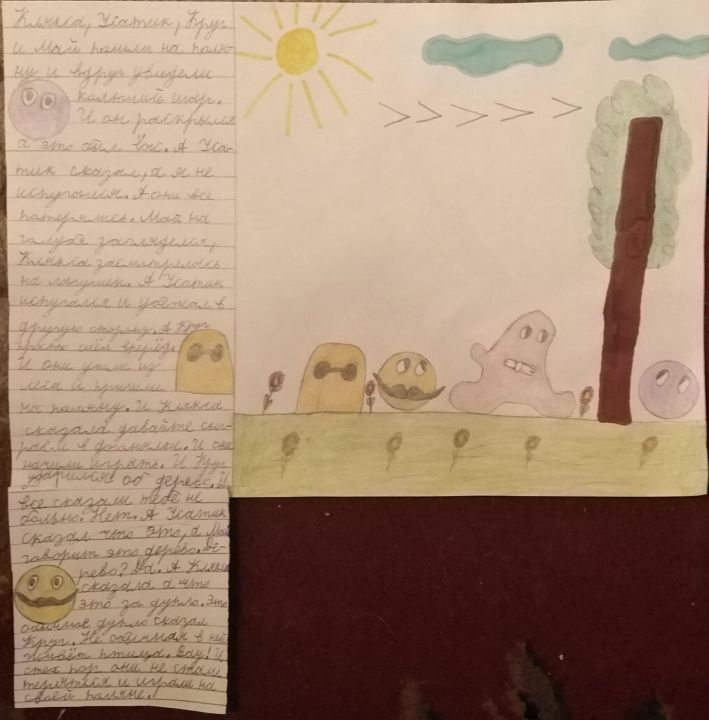 Клякса, Усатик, Круг
и Май пошли на поля-
ну и вдруг увидели
колючий шар.
И он раскрылся
а это был ёж. А Уса-
тик сказал, а я не
испугался. А они все
потерялись. Май на
голубе загляделся,
Клякса засмотрелась
на лягушек. А Усатик
испугался и убежал в
другую сторону. А Круг
просто шёл вперёд.
И они ушли из
леса и пришли
на поляну. И Клякса
сказала давайте сыг-
раем в догонялки. И они
начили играть. И Круг
ударился об дерево. И
все сказали тебе не
больно. Нет. А Усатик
сказал что это, а Май
говорит это дерево. Де-
рево? Да. А Клякса
сказала а что
это за дупло. Это
обычное дупло сказал
Круг. Не обычная в ней
живёт птица. Вау! И
стех пор они не стали
теряться и играли на
своей поляне!